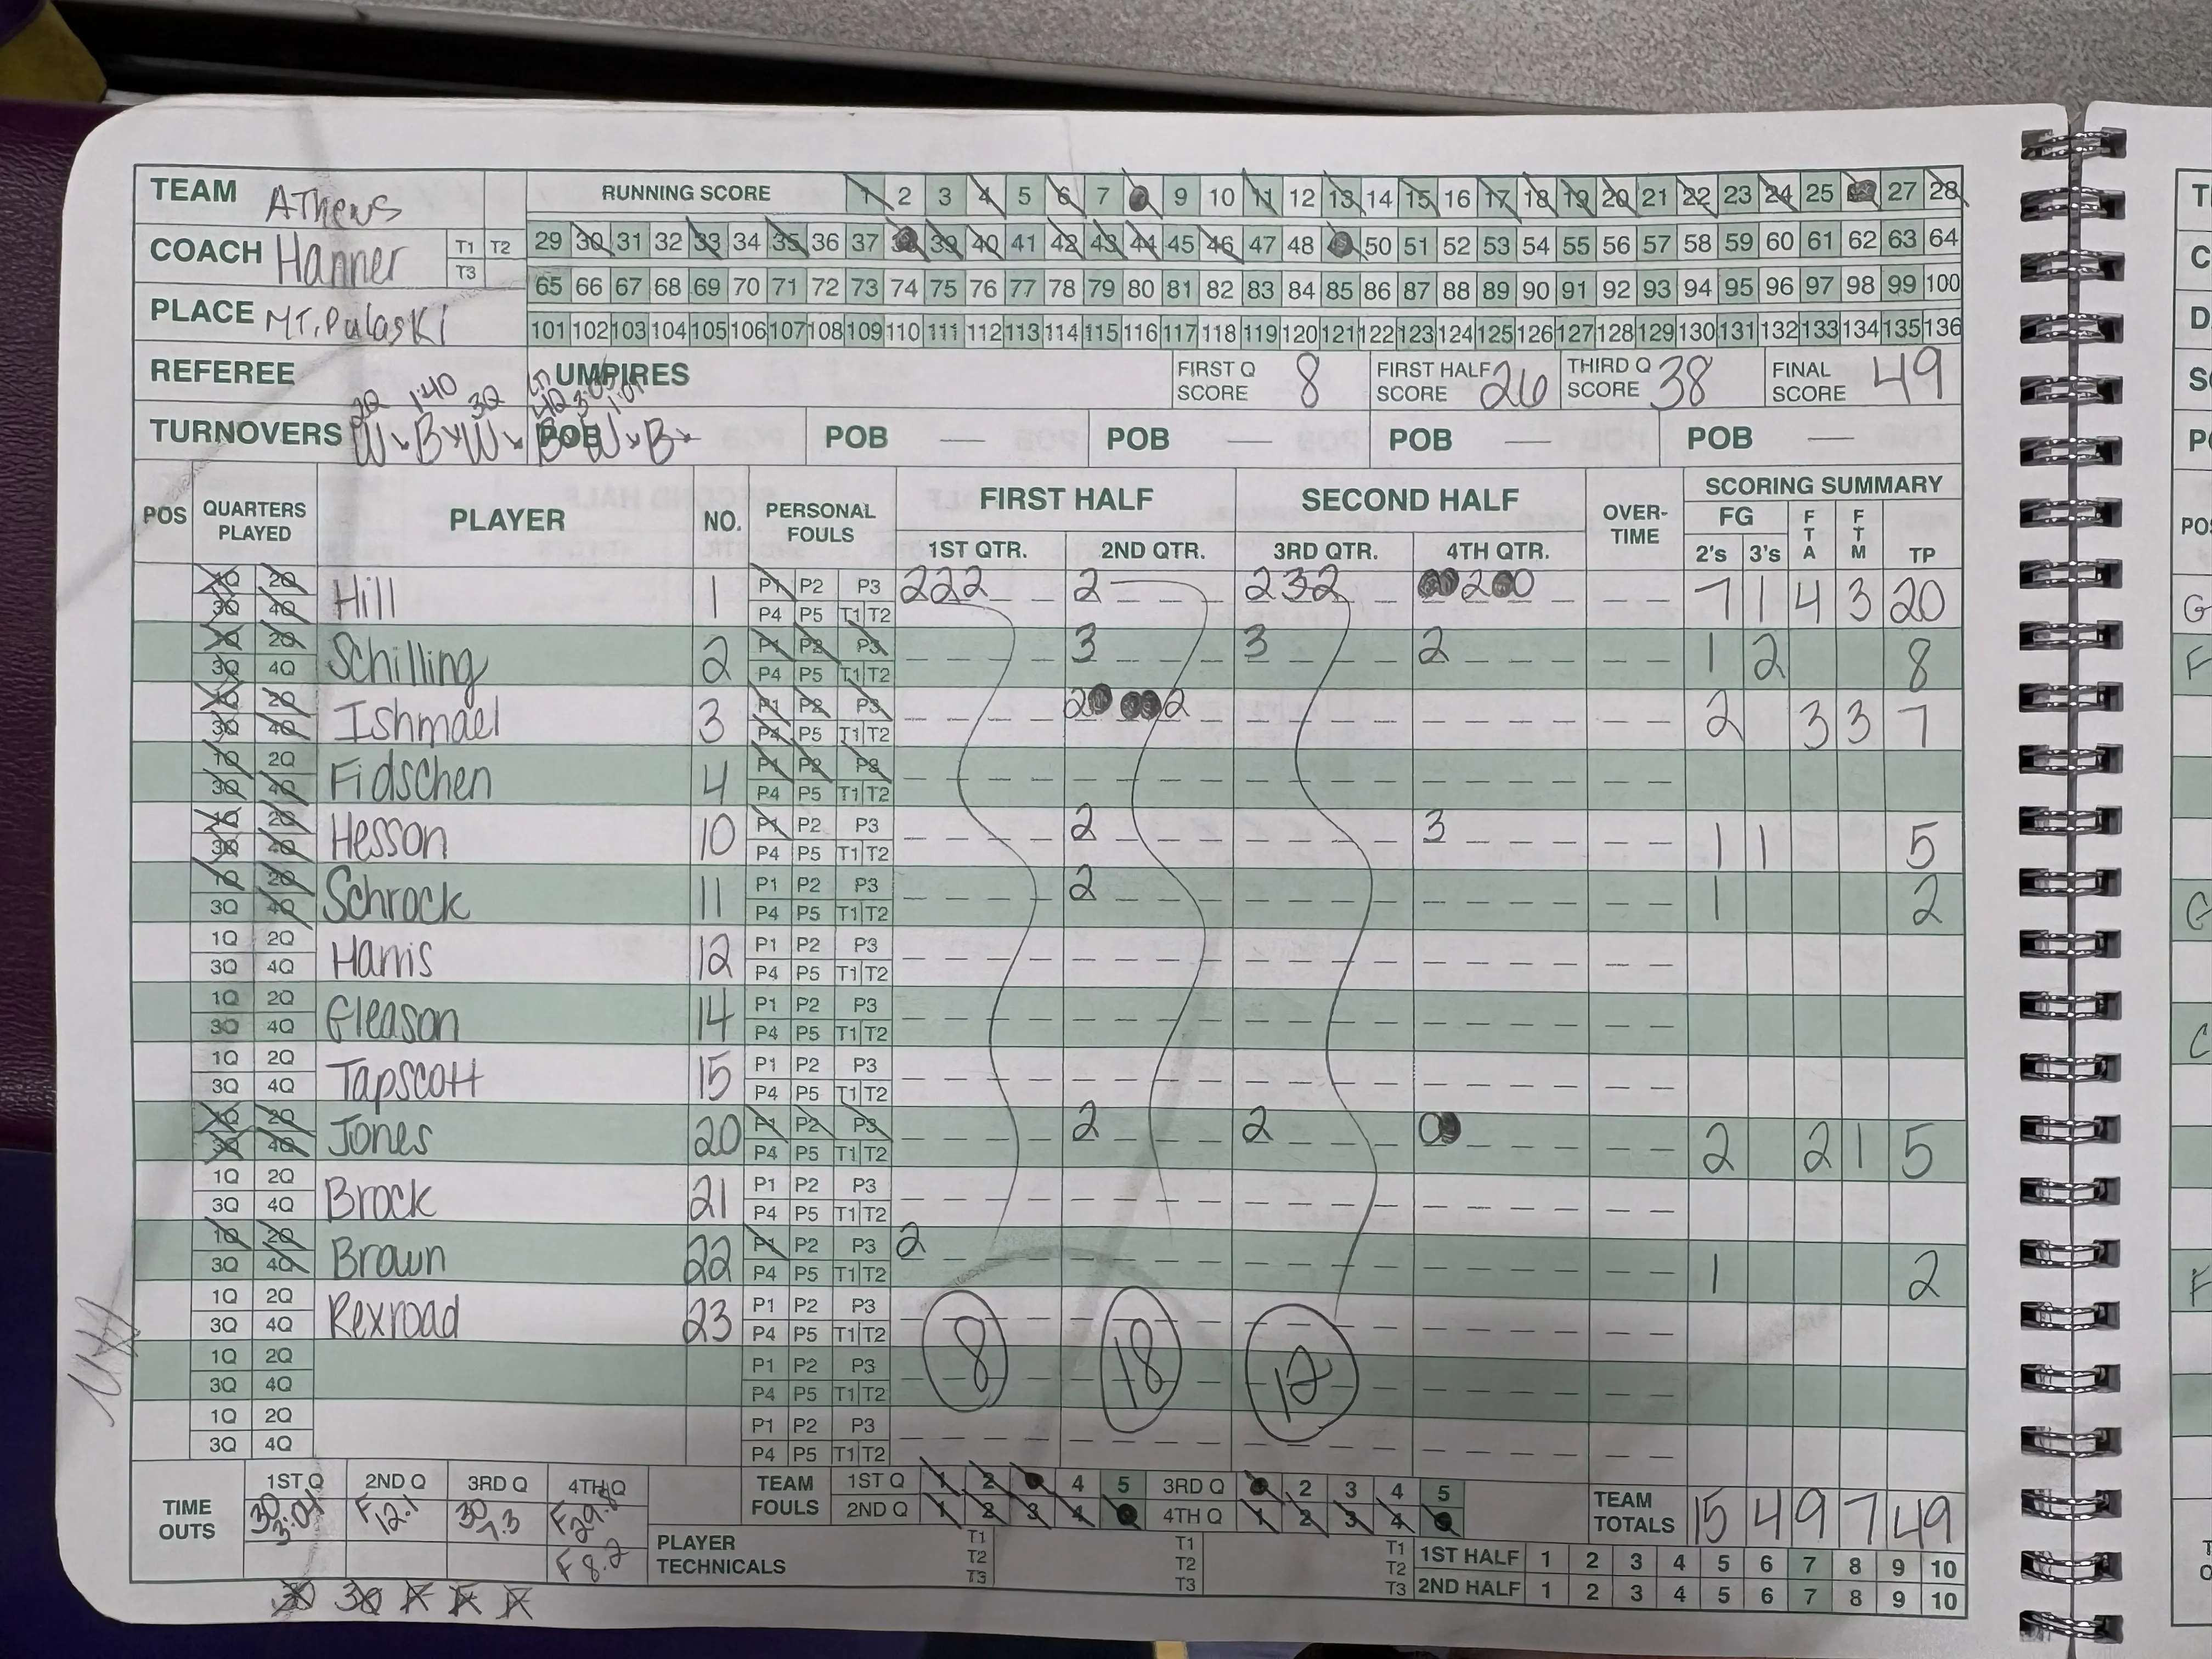 TEAM Athens RUNNING SCORE 1 2 3 4 5 6 7 9 10 11 12 13 14 15 16 17 18 19 20 21 22 23 24 25 27 28
COACH Hanner T1 T2 T3 29 30 31 32 33 34 35 36 37 39 40 41 42 43 44 45 46 47 48 50 51 52 53 54 55 56 57 58 59 60 61 62 63 64
65 66 67 68 69 70 71 72 73 74 75 76 77 78 79 80 81 82 83 84 85 86 87 88 89 90 91 92 93 94 95 96 97 98 99 100
PLACE MT. Pulaski 101 102 103 104 105 106 107 108 109 110 111 112 113 114 115 116 117 118 119 120 121 122 123 124 125 126 127 128 129 130 131 132 133 134 135 136
REFEREE UMPIRES FIRST Q SCORE 8 FIRST HALF SCORE 26 THIRD Q SCORE 38 FINAL SCORE 49
2Q 1:40 3Q 4Q
TURNOVERS W B W POB B W B POB — POB — POB — POB —
POS QUARTERS PLAYED PLAYER NO. PERSONAL FOULS FIRST HALF SECOND HALF OVER-TIME SCORING SUMMARY
1ST QTR. 2ND QTR. 3RD QTR. 4TH QTR. FG 2's 3's FTA FTM TP
1Q 2Q Hill 1 P1 P2 P3 222 2 232 2 0 7 1 4 3 20
3Q 4Q P4 P5 T1 T2
1Q 2Q Schilling 2 P1 P2 P3 3 3 2 1 2 8
3Q 4Q P4 P5 T1 T2
1Q 2Q Ishmael 3 P1 P2 P3 2 2 2 3 3 7
3Q 4Q P4 P5 T1 T2
1Q 2Q Fidschen 4 P1 P2 P3
3Q 4Q P4 P5 T1 T2
1Q 2Q Hesson 10 P1 P2 P3 2 3 1 1 5
3Q 4Q P4 P5 T1 T2
1Q 2Q Schrock 11 P1 P2 P3 2 1 2
3Q 4Q P4 P5 T1 T2
1Q 2Q Harris 12 P1 P2 P3
3Q 4Q P4 P5 T1 T2
1Q 2Q Gleason 14 P1 P2 P3
3Q 4Q P4 P5 T1 T2
1Q 2Q Tapscott 15 P1 P2 P3
3Q 4Q P4 P5 T1 T2
1Q 2Q Jones 20 P1 P2 P3 2 2 0 2 2 1 5
3Q 4Q P4 P5 T1 T2
1Q 2Q Brock 21 P1 P2 P3
3Q 4Q P4 P5 T1 T2
1Q 2Q Brown 22 P1 P2 P3 2 1 2
3Q 4Q P4 P5 T1 T2
1Q 2Q Rexroad 23 P1 P2 P3
3Q 4Q P4 P5 T1 T2
1Q 2Q P1 P2 P3 8 18 12
3Q 4Q P4 P5 T1 T2
1Q 2Q P1 P2 P3
3Q 4Q P4 P5 T1 T2
TIME OUTS 1ST Q 2ND Q 3RD Q 4TH Q TEAM FOULS 1ST Q 1 2 4 5 3RD Q 2 3 4 5
30 3:01 F 12.1 30 7.3 F 29.8 2ND Q 1 2 3 4 4TH Q 1 2 3 4 TEAM TOTALS 15 4 9 7 49
F 8.2 PLAYER TECHNICALS T1 T2 T3 T1 T2 T3 T1 T2 T3 1ST HALF 1 2 3 4 5 6 7 8 9 10
2ND HALF 1 2 3 4 5 6 7 8 9 10
30 30 F F F